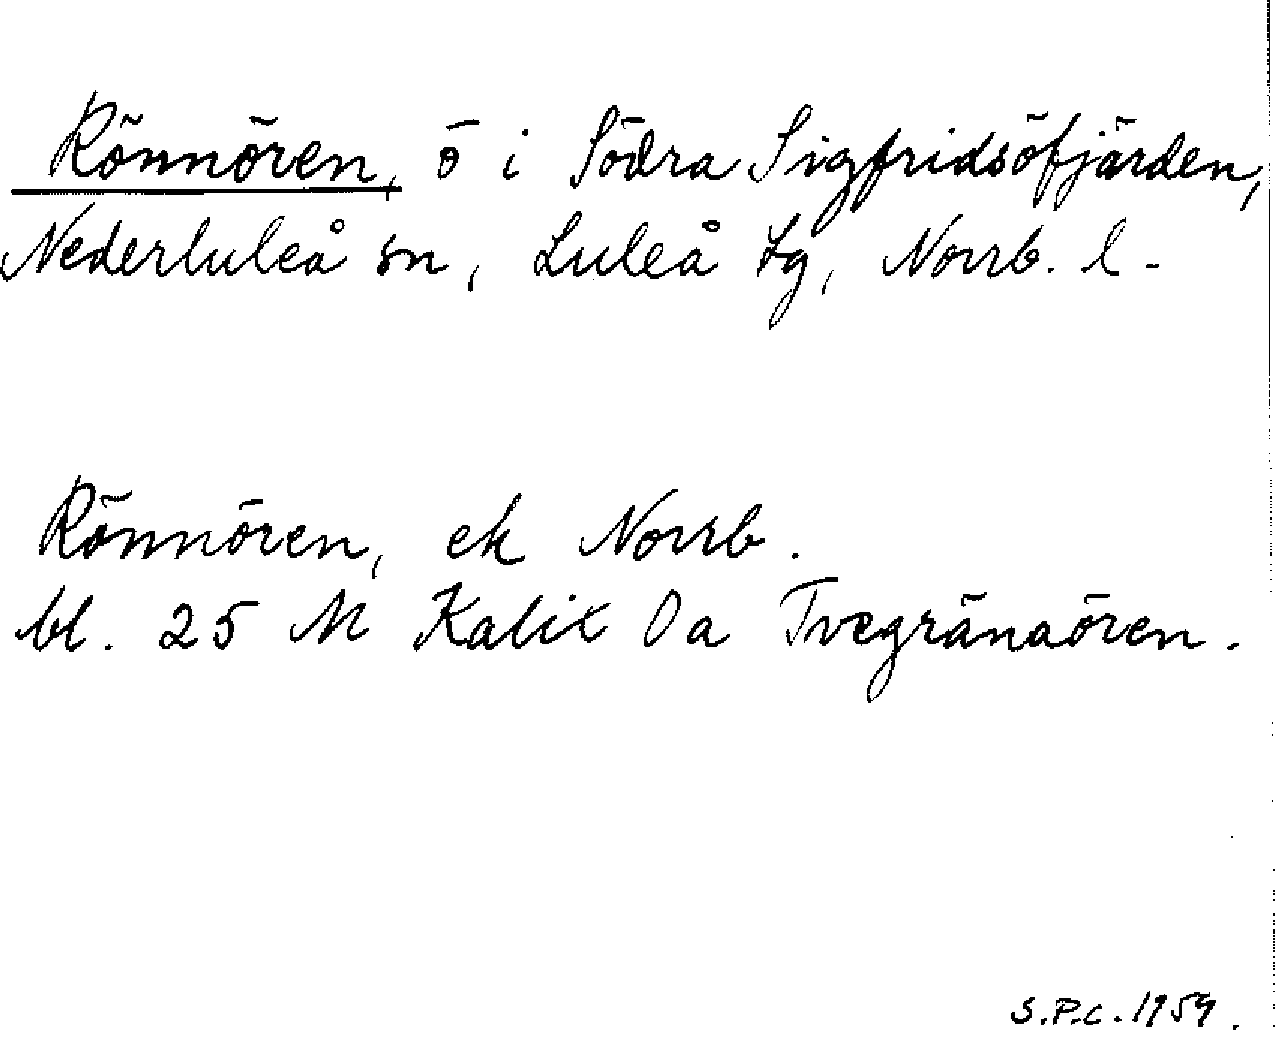 Rönnören, ö i Södra Sigfridsöfjärden,
Nederluleå sn, Luleå tg, Norrb. l.
Rönnören, ek Norrb.
bl. 25 M Kalix Oa Tvegränaören.
S.P.C. 1959.